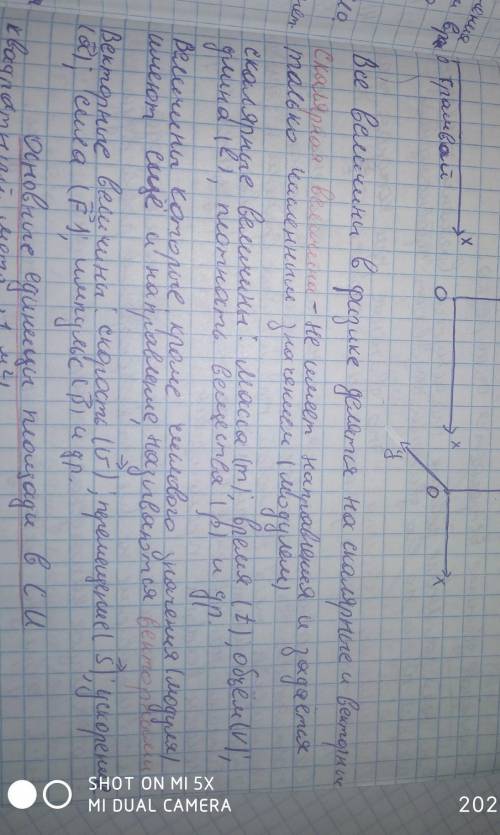 трамвай
x
O
x
O
y
x
Все величины в физике делятся на скалярные и векторные
Скалярная величина - не имеет направления и задаётся
только численным значением (модулем)
скалярные величины: масса (m); время (t); объём (V);
длина (l), плотность вещества (ρ) и др.
Величины которые кроме числового значения (модуля)
имеют ещё и направление, называются векторными
Векторные величины: скорость (v⃗); перемещение (S⃗); ускорение
(a⃗); сила (F⃗); импульс (p⃗) и др.
Основные единицы площади в СИ
квадратный метр
SHOT ON MI 5X
MI DUAL CAMERA
202